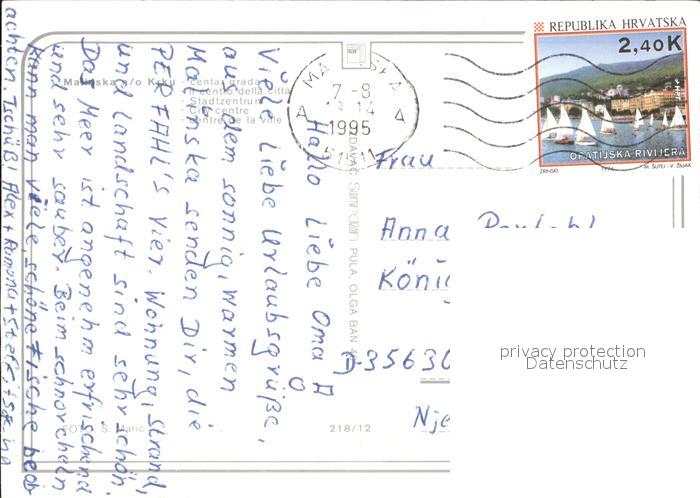 REPUBLIKA HRVATSKA
2,40K
OPATIJSKA RIVIJERA
ZRINSKI
1994
M. ŠUTEJ - V. ŽILJAK
7-8
1995
A A
51511
Malinska
centar grada
Il centro della città
Stadtzentrum
centre
Centre de la Ville
PULA, OLGA BAN
218/12
Hallo Liebe Oma A
Viele Liebe Urlaubsgrüße,
aus dem sonnig, warmen
Malinska senden Dir, die
PERFAHL's Vier. Wohnung, Strand,
und Landschaft sind sehr schön.
Das Meer ist angenehm erfrischend
und sehr sauber. Beim schnorcheln
kann man viele, schöne Fische beob
achten. Tschüß Alex + Ramona +
Frau
Anna
König
D-35630
privacy protection
Datenschutz